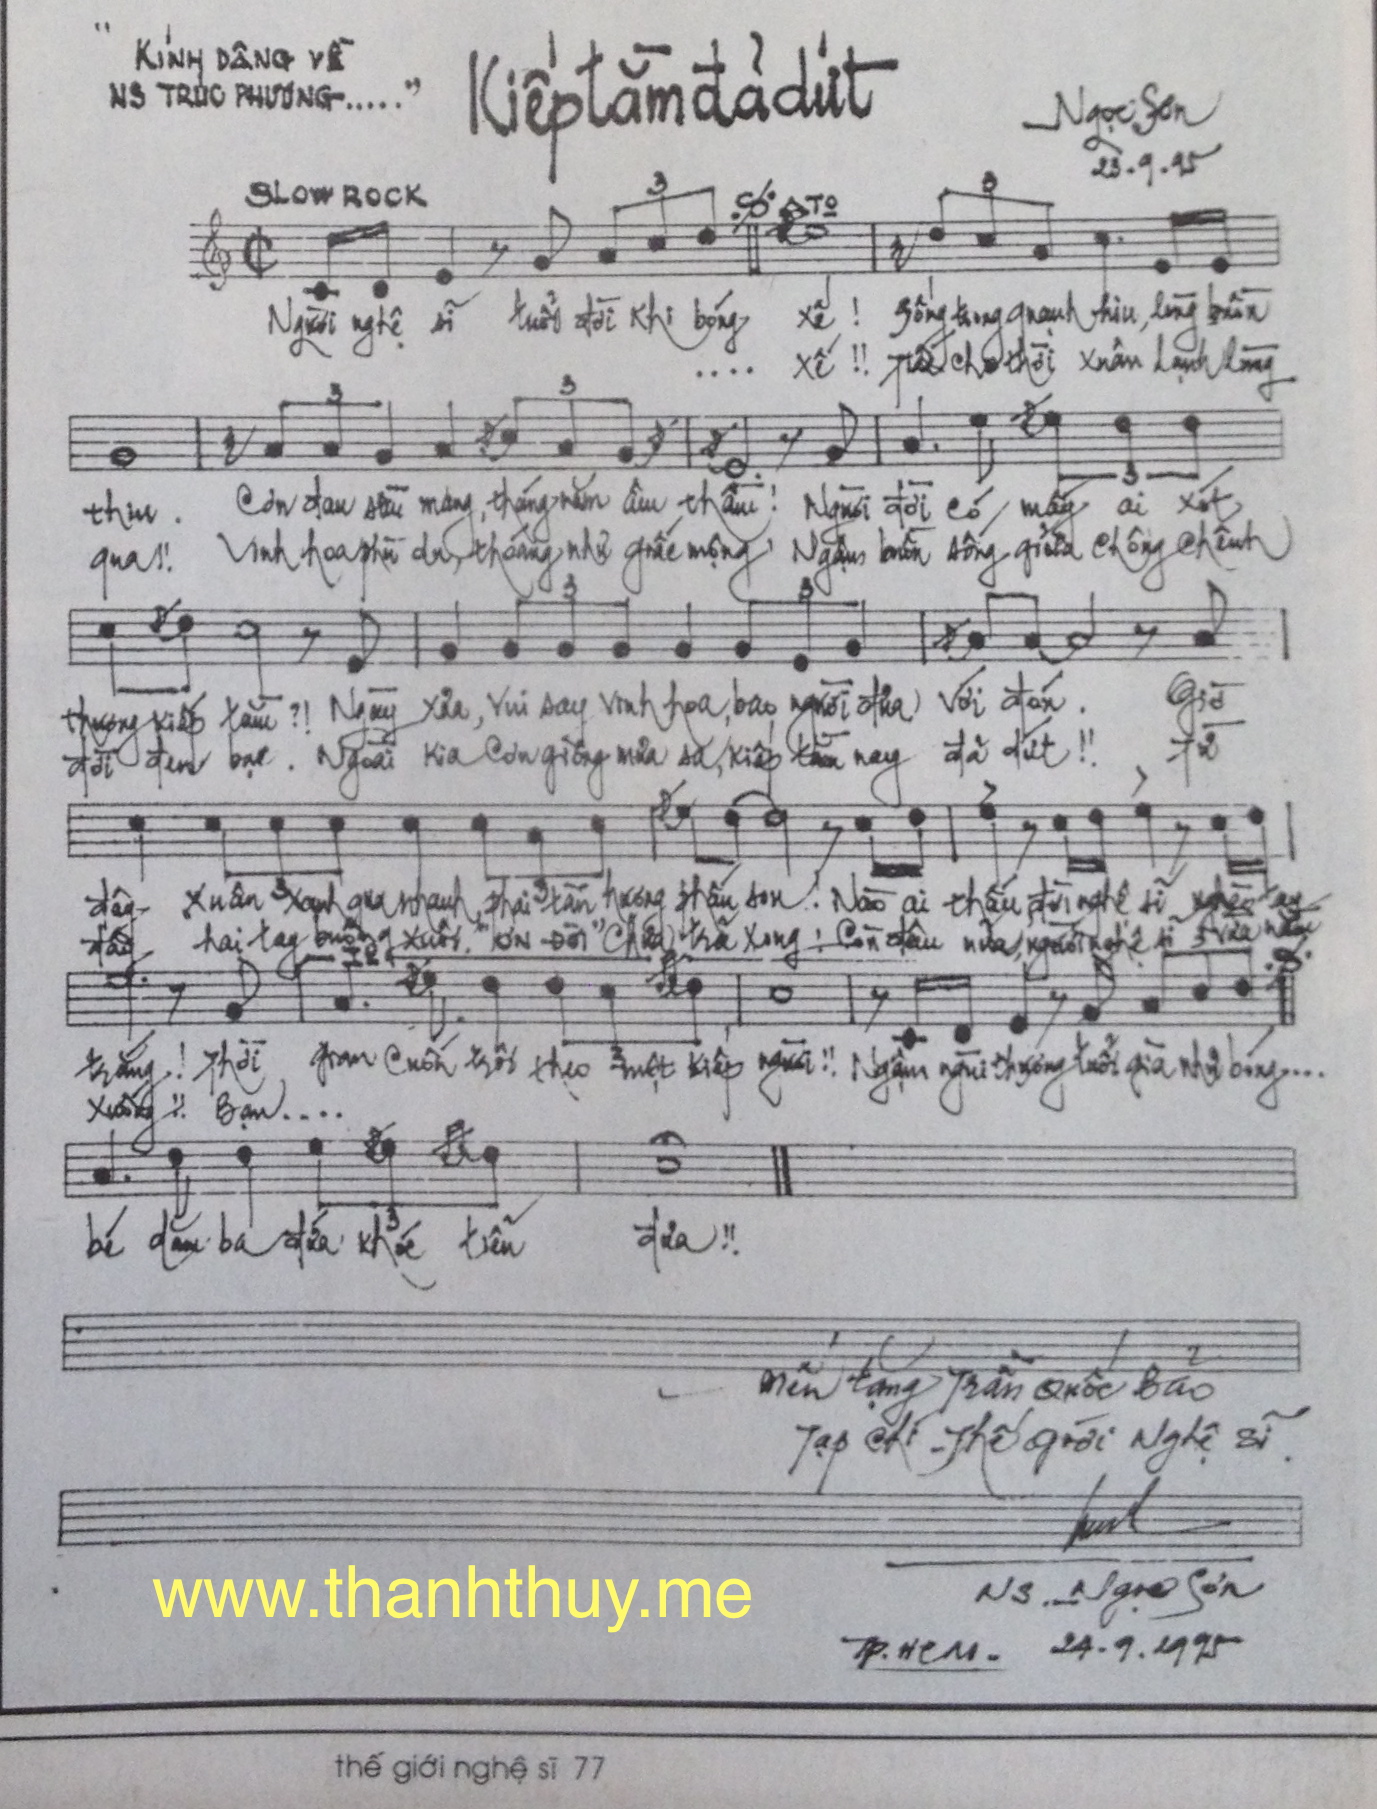 "KÍNH DÂNG VỀ
NS TRÚC PHƯƠNG....."
Kiếp tằm đả dứt
Ngọc Sơn
23.9.95
SLOW ROCK
3 TO 3
Người nghệ sĩ tuổi đời khi bóng xế ! Sống trong quạnh hiu, lòng buồn
.... xế !! Tiếc cho thời xuân lạnh lùng
3 3
thiu . Cơn đau sầu mang, tháng năm âm thầm ! Người đời có mấy ai xót
3
qua !! Vinh hoa phù du, thoáng như giấc mộng ! Ngậm buồn sống giữa chông chênh
3 3
thương kiếp tằm ?! Ngày xưa, vui say vinh hoa, bao người đưa với đón . Giờ
đời đen bạc . Ngoài kia cơn giông mưa sa, kiếp tằm nay đả dứt !! Từ
đây xuân xanh qua nhanh, phai tấn hương phấn son ! Nào ai thấu đời nghệ sĩ nghèo tay
đây hai tay buông xuôi. "ƠN ĐỜI" Chưa trã xong ! Còn đâu nữa, người nghệ sĩ vừa nằm
3
trắng ! Thời gian cuốn trôi theo một kiếp người !! Ngậm ngùi thương tuổi già như bóng....
xuống !! Bạn....
3
bè dăm ba đứa khóc tiễn đưa !!
Mến tặng Trần Quốc Bảo
Tạp chí Thế Giới Nghệ Sĩ.
NS. Ngọc Sơn
TP. HCM. 24.9.1995
www.thanhthuy.me
thế giới nghệ sĩ 77